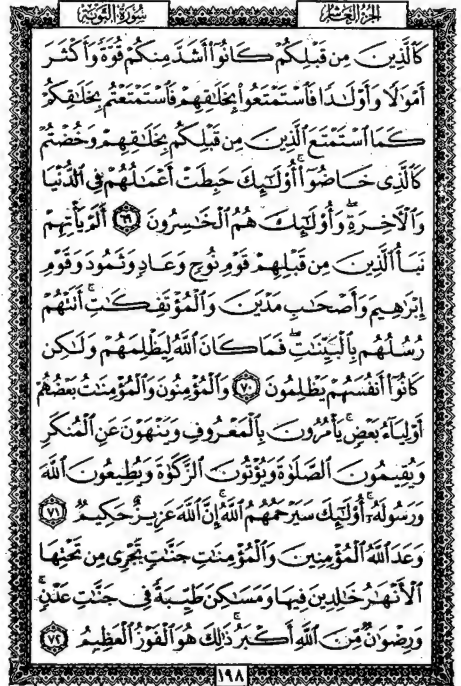 الجزء العاشر
سورة التوبة
كَٱلَّذِينَ مِن قَبْلِكُمْ كَانُوٓا۟ أَشَدَّ مِنكُمْ قُوَّةً وَأَكْثَرَ
أَمْوَٰلًا وَأَوْلَٰدًا فَٱسْتَمْتَعُوا۟ بِخَلَٰقِهِمْ فَٱسْتَمْتَعْتُم بِخَلَٰقِكُمْ
كَمَا ٱسْتَمْتَعَ ٱلَّذِينَ مِن قَبْلِكُم بِخَلَٰقِهِمْ وَخُضْتُمْ
كَٱلَّذِى خَاضُوٓا۟ ۚ أُو۟لَٰٓئِكَ حَبِطَتْ أَعْمَٰلُهُمْ فِى ٱلدُّنْيَا
وَٱلْءَاخِرَةِ ۖ وَأُو۟لَٰٓئِكَ هُمُ ٱلْخَٰسِرُونَ ٦٩ أَلَمْ يَأْتِهِمْ
نَبَأُ ٱلَّذِينَ مِن قَبْلِهِمْ قَوْمِ نُوحٍ وَعَادٍ وَثَمُودَ وَقَوْمِ
إِبْرَٰهِيمَ وَأَصْحَٰبِ مَدْيَنَ وَٱلْمُؤْتَفِكَٰتِ ۚ أَتَتْهُمْ
رُسُلُهُم بِٱلْبَيِّنَٰتِ ۖ فَمَا كَانَ ٱللَّهُ لِيَظْلِمَهُمْ وَلَٰكِن
كَانُوٓا۟ أَنفُسَهُمْ يَظْلِمُونَ ٧٠ وَٱلْمُؤْمِنُونَ وَٱلْمُؤْمِنَٰتُ بَعْضُهُمْ
أَوْلِيَآءُ بَعْضٍ ۚ يَأْمُرُونَ بِٱلْمَعْرُوفِ وَيَنْهَوْنَ عَنِ ٱلْمُنكَرِ
وَيُقِيمُونَ ٱلصَّلَوٰةَ وَيُؤْتُونَ ٱلزَّكَوٰةَ وَيُطِيعُونَ ٱللَّهَ
وَرَسُولَهُۥٓ ۚ أُو۟لَٰٓئِكَ سَيَرْحَمُهُمُ ٱللَّهُ ۗ إِنَّ ٱللَّهَ عَزِيزٌ حَكِيمٌ ٧١
وَعَدَ ٱللَّهُ ٱلْمُؤْمِنِينَ وَٱلْمُؤْمِنَٰتِ جَنَّٰتٍ تَجْرِى مِن تَحْتِهَا
ٱلْأَنْهَٰرُ خَٰلِدِينَ فِيهَا وَمَسَٰكِنَ طَيِّبَةً فِى جَنَّٰتِ عَدْنٍ ۚ
وَرِضْوَٰنٌ مِّنَ ٱللَّهِ أَكْبَرُ ۚ ذَٰلِكَ هُوَ ٱلْفَوْزُ ٱلْعَظِيمُ ٧٢
١٩٨